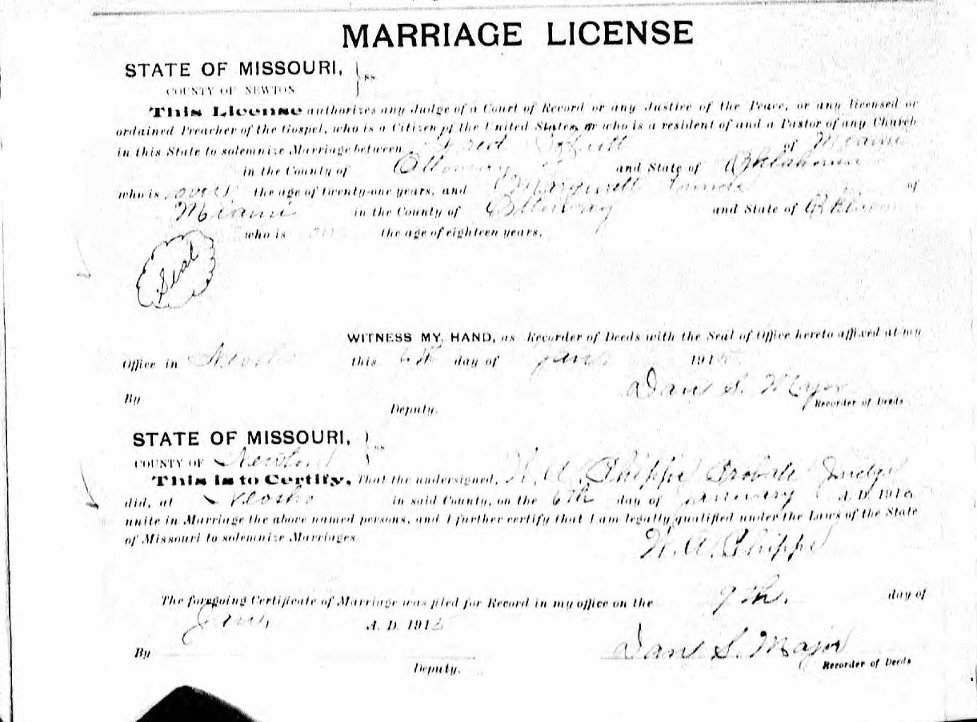 MARRIAGE LICENSE
STATE OF MISSOURI, } ss
COUNTY OF NEWTON
This License authorizes any Judge of a Court of Record or any Justice of the Peace, or any licensed or
ordained Preacher of the Gospel, who is a Citizen of the United States, or who is a resident of and a Pastor of any Church
in this State to solemnize Marriage between of Miami
in the County of Ottoway and State of Oklahoma
who is over the age of twenty-one years, and of
Miami in the County of Ottoway and State of
who is the age of eighteen years.
Seal
WITNESS MY HAND, as Recorder of Deeds with the Seal of Office hereto affixed at my
Office in this 6th day of Jan 191
By Dan S. Major
Deputy. Recorder of Deeds
STATE OF MISSOURI, } ss
COUNTY OF Newton
This is to Certify, That the undersigned, W. A. Phipps Probate Judge
did, at Neosho in said County, on the 6th day of January A. D. 191
unite in Marriage the above named persons, and I further certify that I am legally qualified under the Laws of the State
of Missouri to solemnize Marriages
W. A. Phipps
The foregoing Certificate of Marriage was filed for Record in my office on the 9th. day of
Jan, A. D. 191
By Dan S. Major
Deputy. Recorder of Deeds